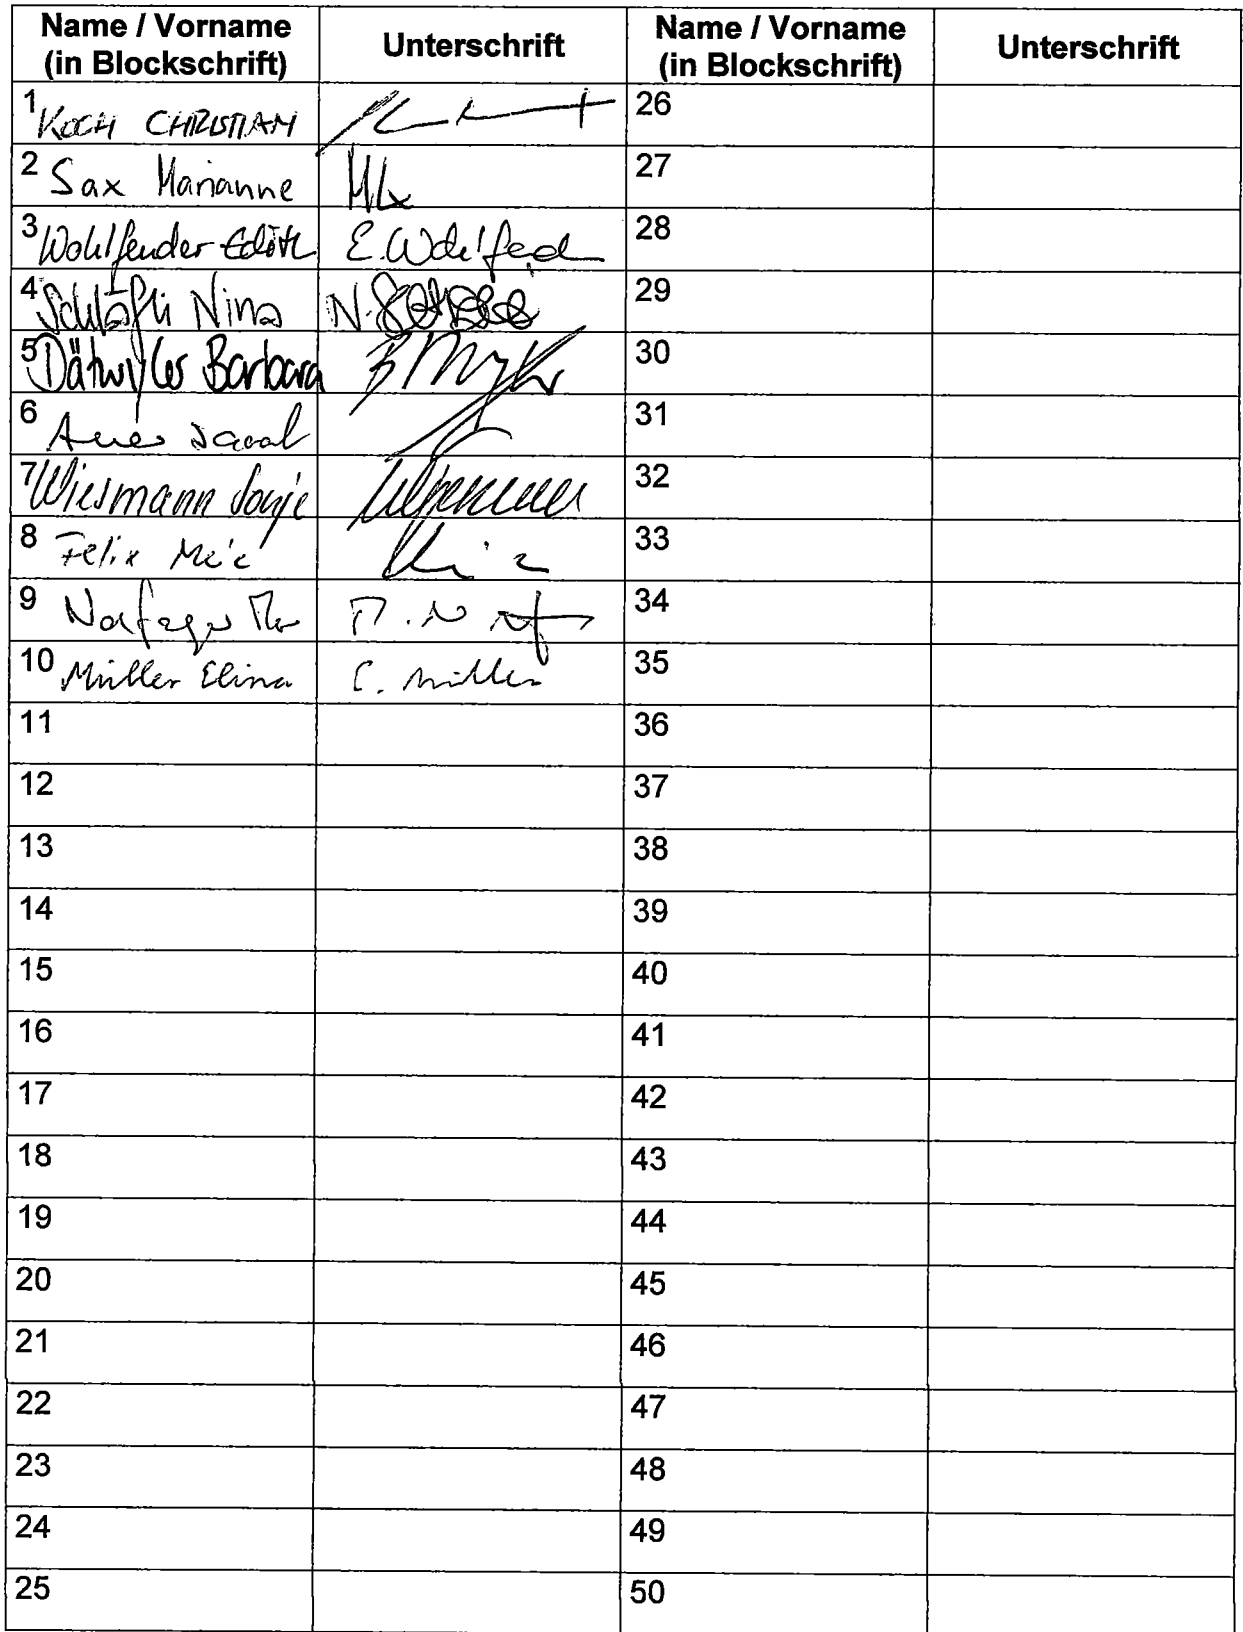 Name / Vorname
(in Blockschrift)
Unterschrift
Name / Vorname
(in Blockschrift)
Unterschrift
1 KOCH CHRISTIAN
26
2 Sax Marianne
27
3 Wohlfender Edith E. Wohlfend
28
4 Schläfli Nina N.
29
5 Dätwyler Barbara
30
6
31
7 Wiesmann Sonja
32
8 Felix
33
9
34
10 Müller Elina E. Müller
35
11
36
12
37
13
38
14
39
15
40
16
41
17
42
18
43
19
44
20
45
21
46
22
47
23
48
24
49
25
50